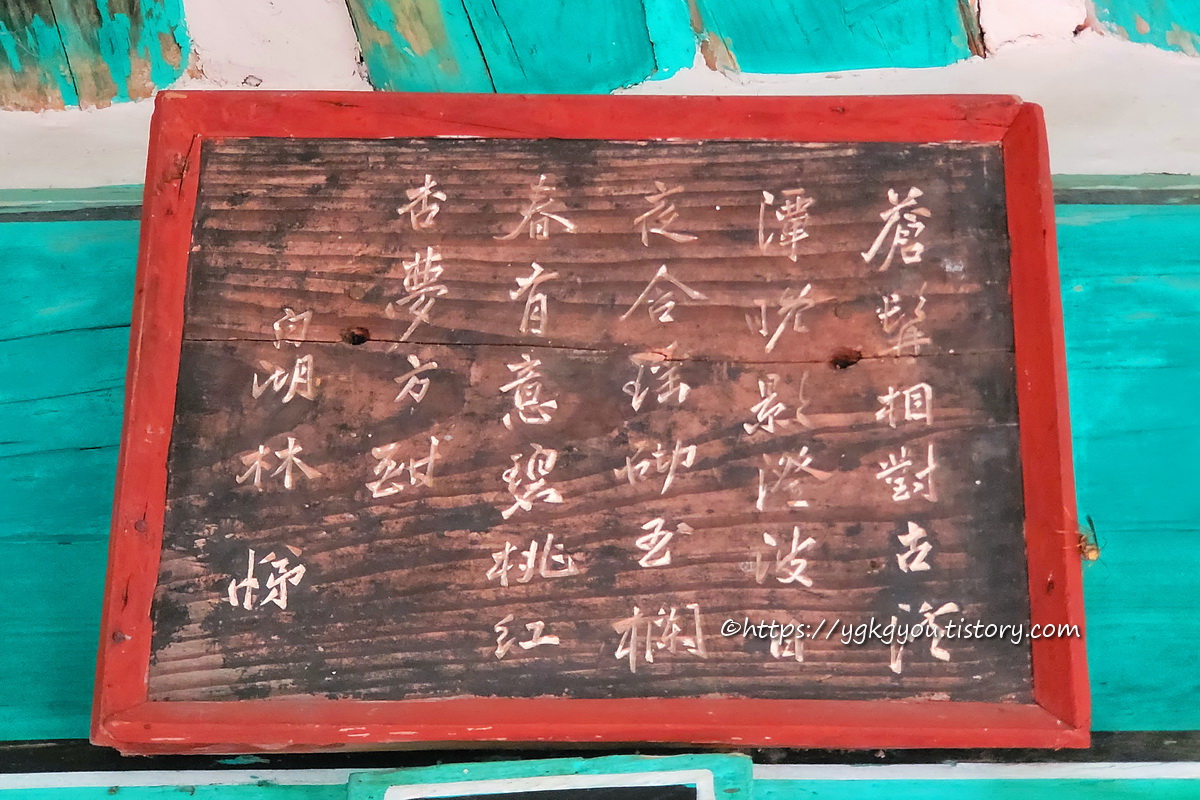 蒼髥相對古
潭晩影澄波日
夜合瑤砌玉欄
春有意碧桃紅
杏夢方酣
白湖林悌
©https://ygkgyou.tistory.com